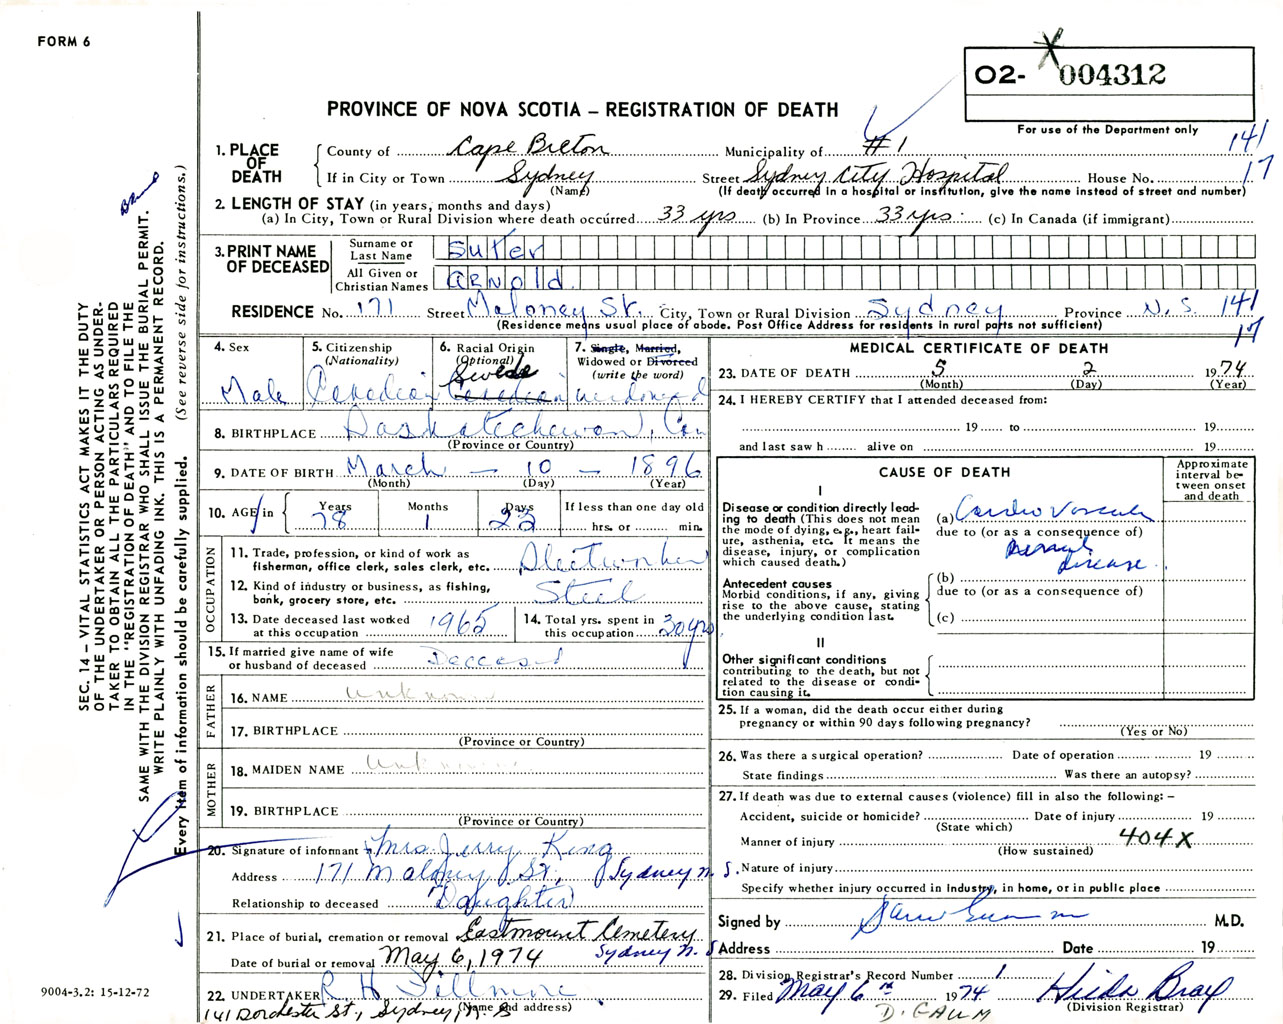 FORM 6
O2- 004312
For use of the Department only
PROVINCE OF NOVA SCOTIA – REGISTRATION OF DEATH
1. PLACE OF DEATH
County of Cape Breton Municipality of #1 141
If in City or Town Sydney Street Sydney City Hospital House No. 17
(Name) (If death occurred in a hospital or institution, give the name instead of street and number)
2. LENGTH OF STAY (in years, months and days)
(a) In City, Town or Rural Division where death occurred 33 yrs (b) In Province 33 yrs. (c) In Canada (if immigrant)
3. PRINT NAME OF DECEASED
Surname or Last Name Suter
All Given or Christian Names Arnold
RESIDENCE No. 171 Street Maloney St. City, Town or Rural Division Sydney Province N.S. 141
(Residence means usual place of abode. Post Office Address for residents in rural parts not sufficient) 17
4. Sex Male
5. Citizenship (Nationality) Canadian
6. Racial Origin (Optional) Swede Canadian
7. Single, Married, Widowed or Divorced (write the word) widowed
8. BIRTHPLACE Saskatchewan, Can
(Province or Country)
9. DATE OF BIRTH March – 10 – 1896
(Month) (Day) (Year)
10. AGE in Years 78 Months 1 Days 22 If less than one day old hrs. or min.
OCCUPATION
11. Trade, profession, or kind of work as fisherman, office clerk, sales clerk, etc. Steelworker
12. Kind of industry or business, as fishing, bank, grocery store, etc. Steel
13. Date deceased last worked at this occupation 1965
14. Total yrs. spent in this occupation 30 yrs
15. If married give name of wife or husband of deceased Deceased
FATHER
16. NAME Unknown
17. BIRTHPLACE
(Province or Country)
MOTHER
18. MAIDEN NAME Unknown
19. BIRTHPLACE
(Province or Country)
20. Signature of informant Mrs Jerry King
Address 171 Maloney St, Sydney N.S.
Relationship to deceased Daughter
21. Place of burial, cremation or removal Eastmount Cemetery
Date of burial or removal May 6, 1974 Sydney N.S
22. UNDERTAKER R H Fillmore
(Name and address)
141 Dorchester St., Sydney, N.S
MEDICAL CERTIFICATE OF DEATH
23. DATE OF DEATH 5 2 1974
(Month) (Day) (Year)
24. I HEREBY CERTIFY that I attended deceased from:
19 to 19
and last saw h alive on 19
CAUSE OF DEATH
Approximate interval between onset and death
I
Disease or condition directly leading to death (This does not mean the mode of dying, e.g., heart failure, asthenia, etc. It means the disease, injury, or complication which caused death.)
(a) Cardio Vascular
due to (or as a consequence of)
disease
Antecedent causes
Morbid conditions, if any, giving rise to the above cause, stating the underlying condition last.
(b)
due to (or as a consequence of)
(c)
II
Other significant conditions
contributing to the death, but not related to the disease or condition causing it.
25. If a woman, did the death occur either during pregnancy or within 90 days following pregnancy?
(Yes or No)
26. Was there a surgical operation? Date of operation 19
State findings Was there an autopsy?
27. If death was due to external causes (violence) fill in also the following: –
Accident, suicide or homicide? Date of injury 19
(State which)
Manner of injury 404X
(How sustained)
Nature of injury
Specify whether injury occurred in industry, in home, or in public place
Signed by M.D.
Address Date 19
28. Division Registrar's Record Number 1
29. Filed May 6th 1974 Hilda Bray
(Division Registrar)
SEC. 14 – VITAL STATISTICS ACT MAKES IT THE DUTY
OF THE UNDERTAKER OR PERSON ACTING AS UNDER-
TAKER TO OBTAIN ALL THE PARTICULARS REQUIRED
IN THE "REGISTRATION OF DEATH" AND TO FILE THE
SAME WITH THE DIVISION REGISTRAR WHO SHALL ISSUE THE BURIAL PERMIT.
WRITE PLAINLY WITH UNFADING INK. THIS IS A PERMANENT RECORD.
Every item of information should be carefully supplied. (See reverse side for instructions.)
9004-3.2: 15-12-72